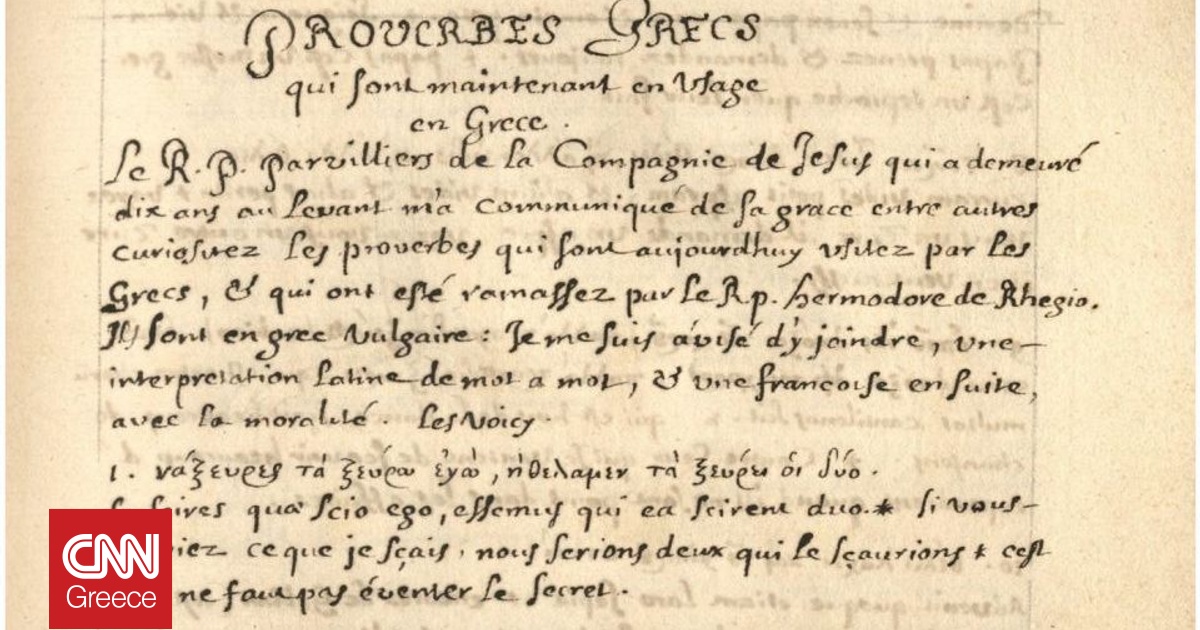 PROVERBES GRECS
qui sont maintenant en Vsage
en Grece.
Le R. P. Parvilliers de la Compagnie de Jesus qui a demeuré
dix ans au Levant m'a communiqué de sa grace entre autres
curiositez les proverbes qui sont aujourdhuy vsitez par les
Grecs, & qui ont esté ramassez par le R p. hermodore de Rhegio.
Ils sont en grec vulgaire : Je me suis avisé d'y joindre, vne
interpretation latine de mot a mot, & vne francoise en suite,
avec la moralité. les voicy.
1. νάξευρες τά ξεύρω ἐγώ, ήθελαμεν τά ξευρει ὁι δύο.
scires quae scio ego, essemus qui ea scirent duo.* si vous-
ce que je sçais, nous serions deux qui le sçaurions * cest
ne faut pas éventer le secret.
CNN
Greece